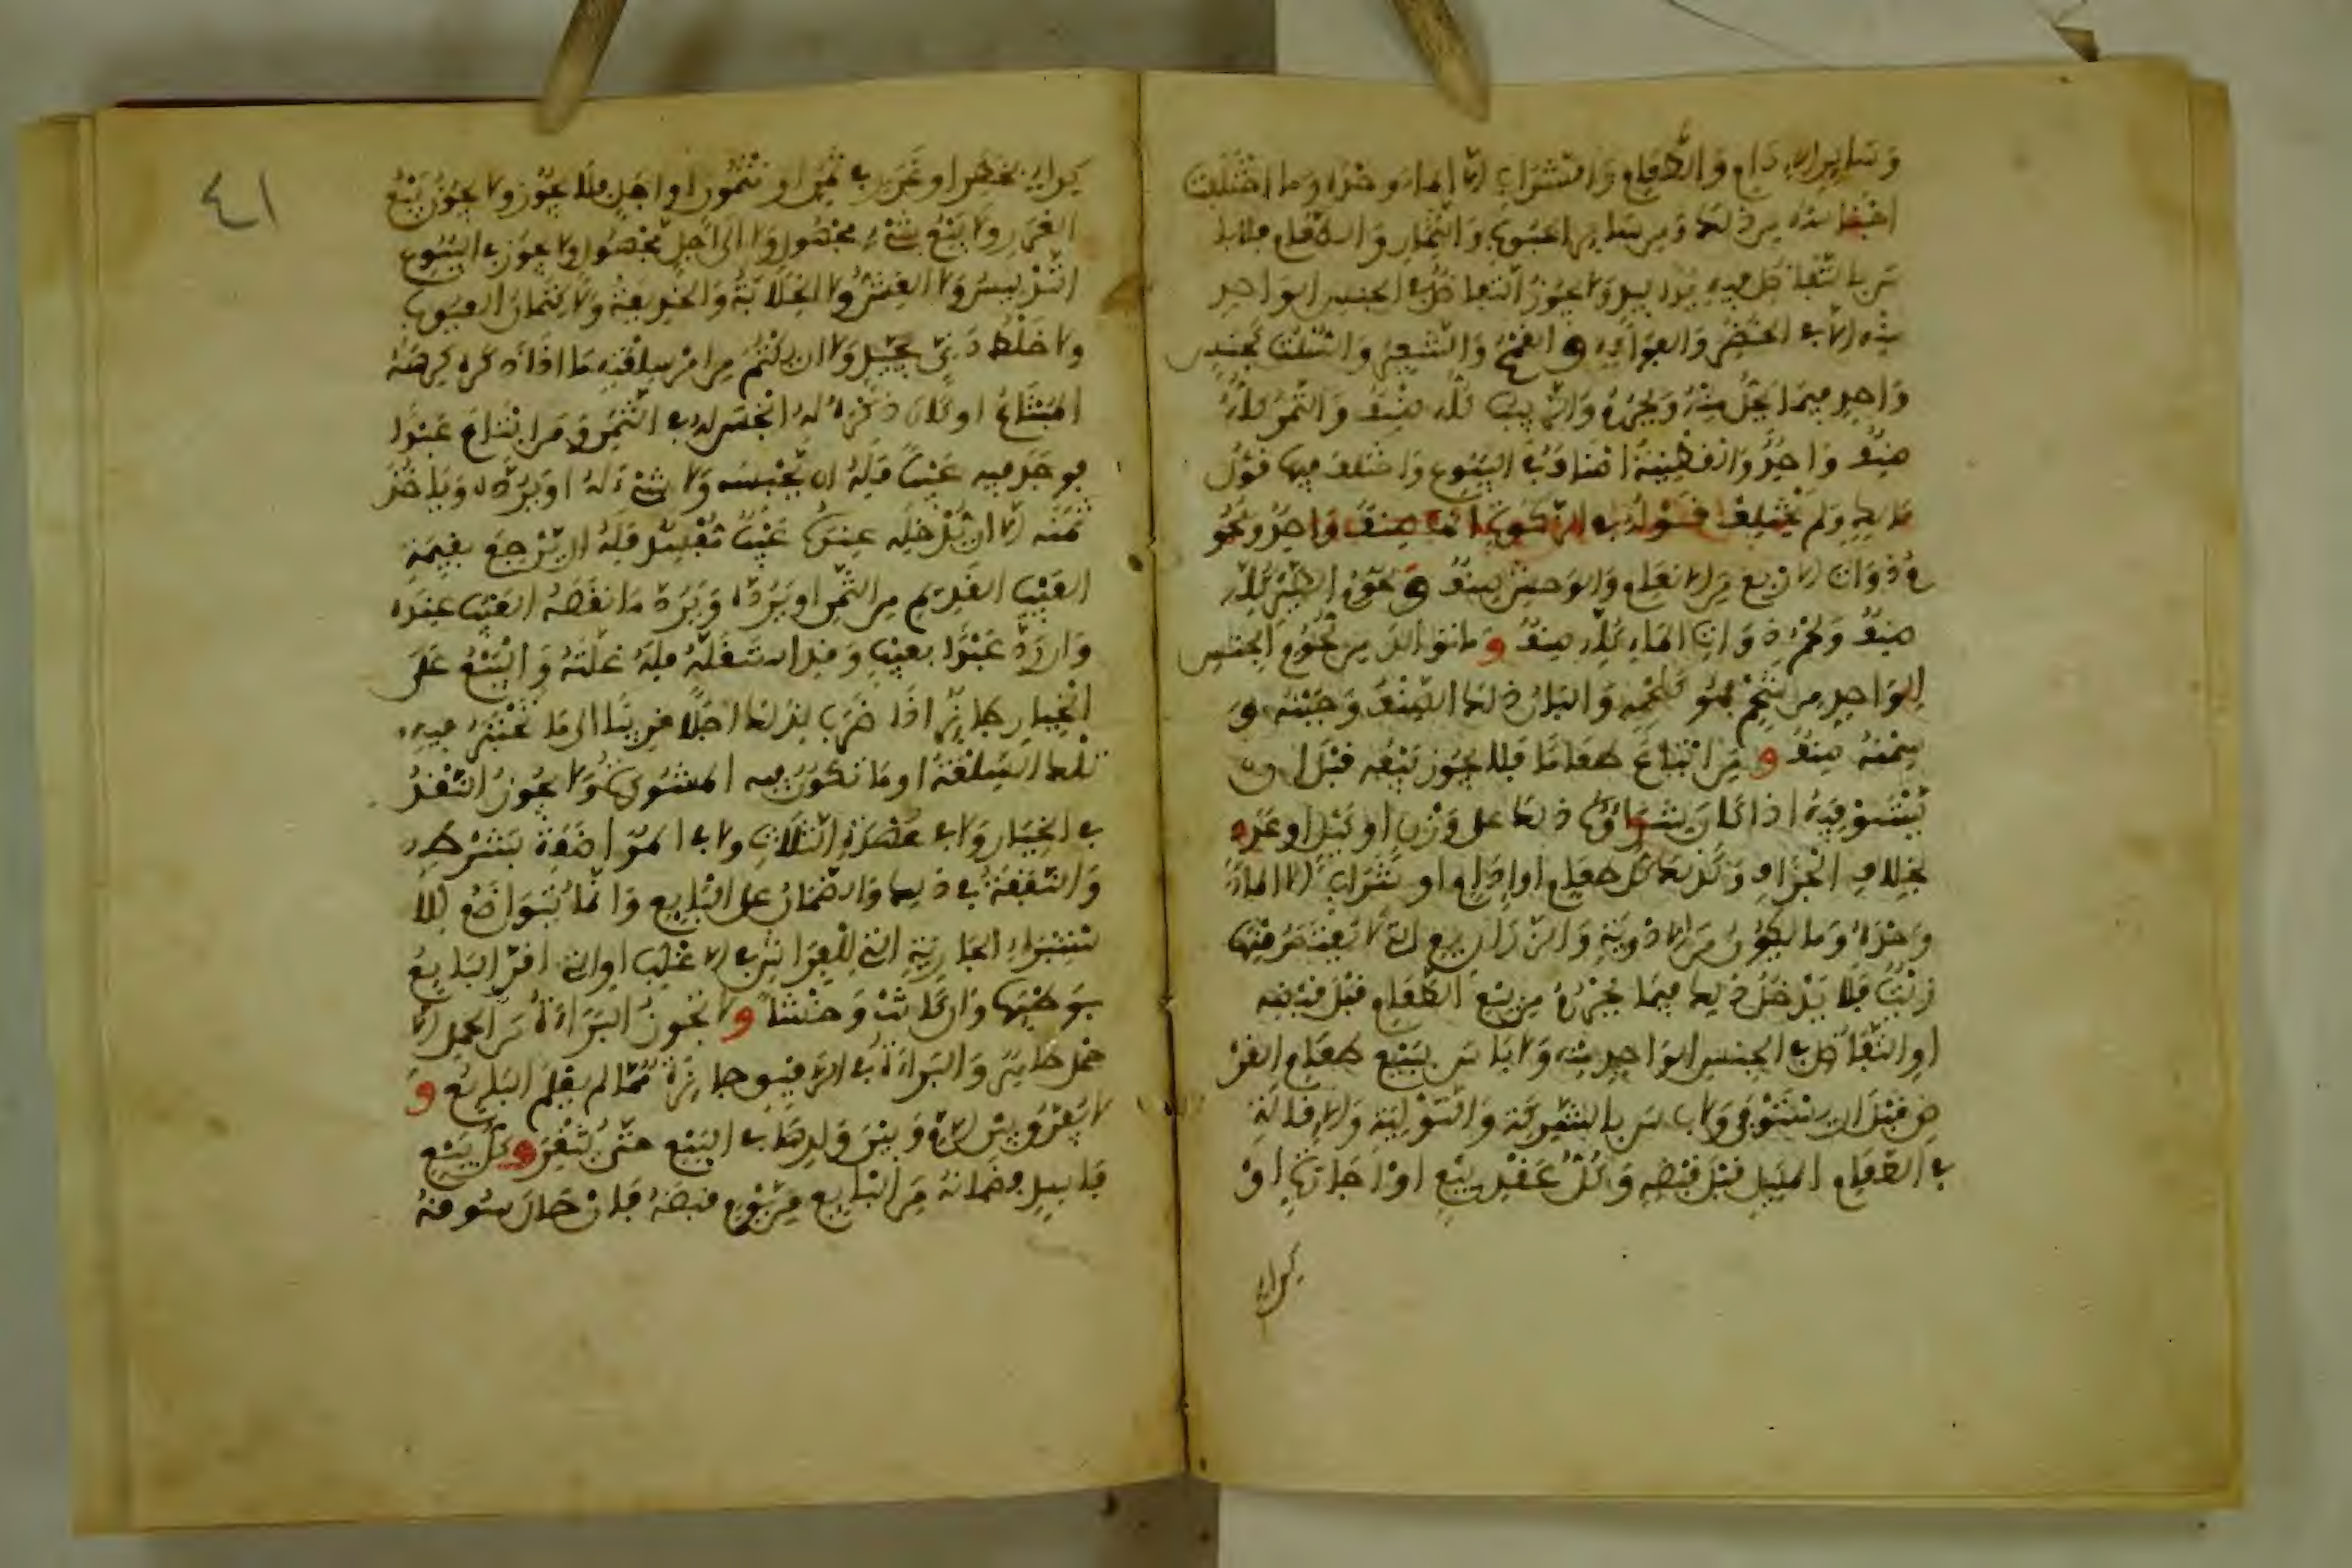 وساير الادام والطعام والشراب الا الماء وحده وما اختلفت
اجناسه من ذلك ومن ساير الحبوب والثمار والطعام فلا با
س بالتفاضل فيه يدا بيد ولا يجوز التفاضل في الجنس الواحد
منه الا في الخضر والفواكه و القمح والشعير والسلت كجنس
واحد فيما يحل منه ويحرم والزبيب كله صنف والتمر كله
صنف واحد والقطنية اصناف في البيوع واختلف فيها قول
مالك ولم يختلف قوله في الزكوة انها صنف واحد ولحو
م ذوات الاربع من الانعام والوحش صنف و لحوم الطير كله
صنف ولحم ذوات الماء كله صنف و ما تولد من لحوم الجنس
الواحد من شحم فهو كلحمه والبان ذلك الصنف وجبنه و
سمنه صنف و من ابتاع طعاما فلا يجوز بيعه قبل ان
يستوفيه اذا كان شراؤه ذلك على وزن او كيل او عدد
بخلاف الجزاف وكذلك كل طعام او ادام او شراب الا الماء
وحده وما يكون من الادوية والزراريع التي لا يعتصر منها
زيت فلا يدخل ذلك فيما يحرم من بيع الطعام قبل قبضه
او التفاضل في الجنس الواحد منه ولا باس ببيع طعام القر
ض قبل ان يستوفى ولا باس بالشركة والتولية والاقالة
في الطعام المكيل قبل قبضه وكل عقد بيع او اجارة او
كراء
٤١
كراء بخطر او غرر في ثمن او مثمون او اجل فلا يجوز ولا يجوز بيع
الغرر ولا بيع شيء مجهول ولا الى اجل مجهول ولا يجوز في البيوع
التدليس ولا الغش ولا الخلابة ولا الخديعة ولا كتمان العيوب
ولا خلط دني بجيد ولا ان يكتم من امر سلعته ما اذا ذكره كرهه
المبتاع او كان ذكره له ابخس له في الثمن و من ابتاع عبدا
فوجد فيه عيبا فله ان يحبسه ولا شيء له او يرده وياخذ
ثمنه الا ان يدخله عنده عيب مفسد فله ان يرجع بقيمة
العيب القديم من الثمن او يرده ويرد ما نقصه العيب عنده
وان رد عبدا بعيب وقد استغله فله غلته والبيع على
الخيار جائز اذا ضرب لذلك اجلا قريبا الى ما تختبر فيه
تلك السلعة او ما تكون فيه المشورة ولا يجوز النقد
في الخيار ولا في عهدة الثلاث ولا في المواضعة بشرط
والنفقة في ذلك والضمان على البايع وانما يتواضع للا
ستبراء الجارية التي للفراش في الاغلب او التي اقر البايع
بوطئها وان كانت وخشا و لا تجوز البراءة من الحمل الا
حمل ظاهر والبراءة في الرقيق جائزة مما لم يعلم البايع و
لا يفرق بين الام وبين ولدها في البيع حتى يثغر و كل بيع
فاسد فضمانه من البايع فان قبضه فان حال سوقه